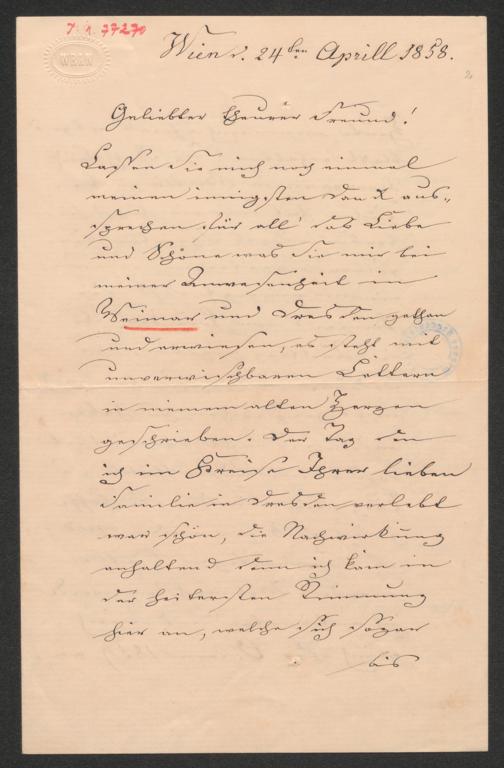 J. N. 77270
WIEN
Wien d. 24ten Aprill 1858.
2
Geliebter theurer Freund!
Lassen Sie mich noch einmal
meinen innigsten Dank aus-
sprechen für all' das Liebe
und Schöne was Sie mir bei
meiner Anwesenheit in
Weimar und Dresden gethan
und erwiesen, es steht mit
unverwischbaren Lettern
in meinem alten Herzen
geschrieben. Der Tag den
ich im Kreise Ihrer lieben
Familie in Dresden verlebt
war schön, die Nachwirkung
anhaltend denn ich kam in
der heitersten Stimmung
hier an, welche sich sogar
bis